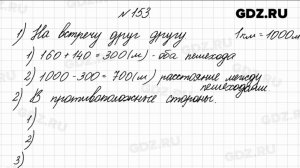 GDZ.RU
№153
1) На встречу друг другу 1км = 1000м
1) 160 + 140 = 300 (м) - оба пешехода
2) 1000 - 300 = 700 (м) расстояние между пешеходами
2) В противоположные стороны.
1)
2)
3)